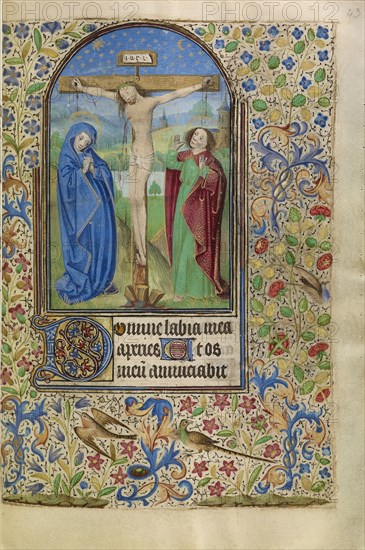 43
INRI
Domine labia mea
aperies Et os
meum anunciabit